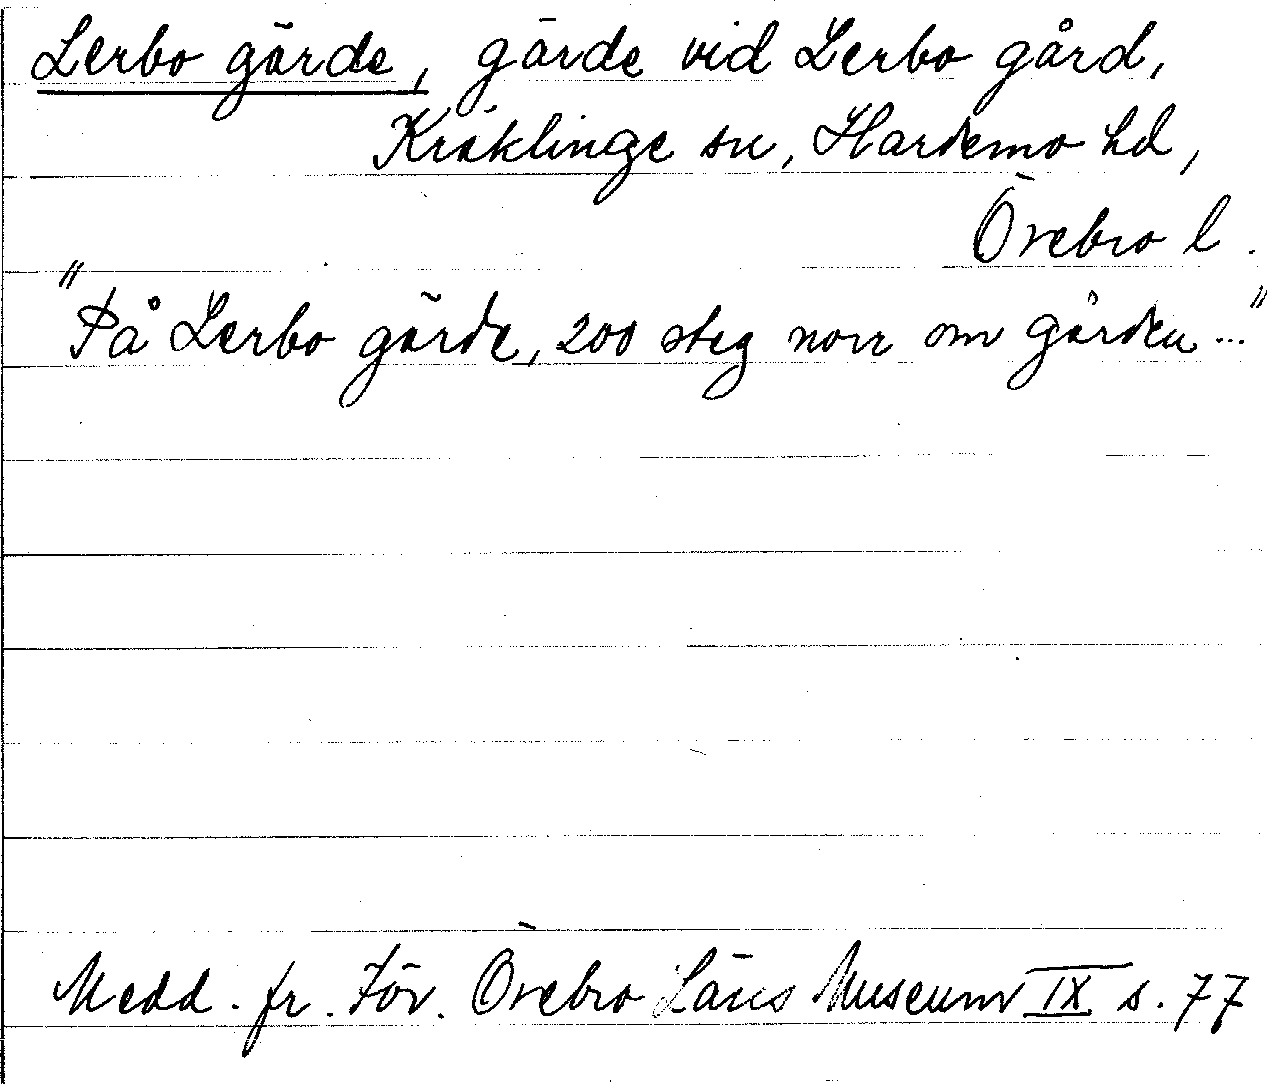 Lerbo gärde, gärde vid Lerbo gård,
Kräklinge sn, Hardemo hd,
Örebro l.
"På Lerbo gärde, 200 steg norr om gården..."
Medd. fr. För. Örebro Läns Museum IX s. 77